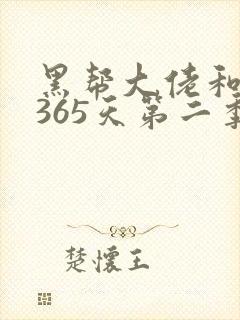 黑帮大佬和
365天第二季
楚懷王